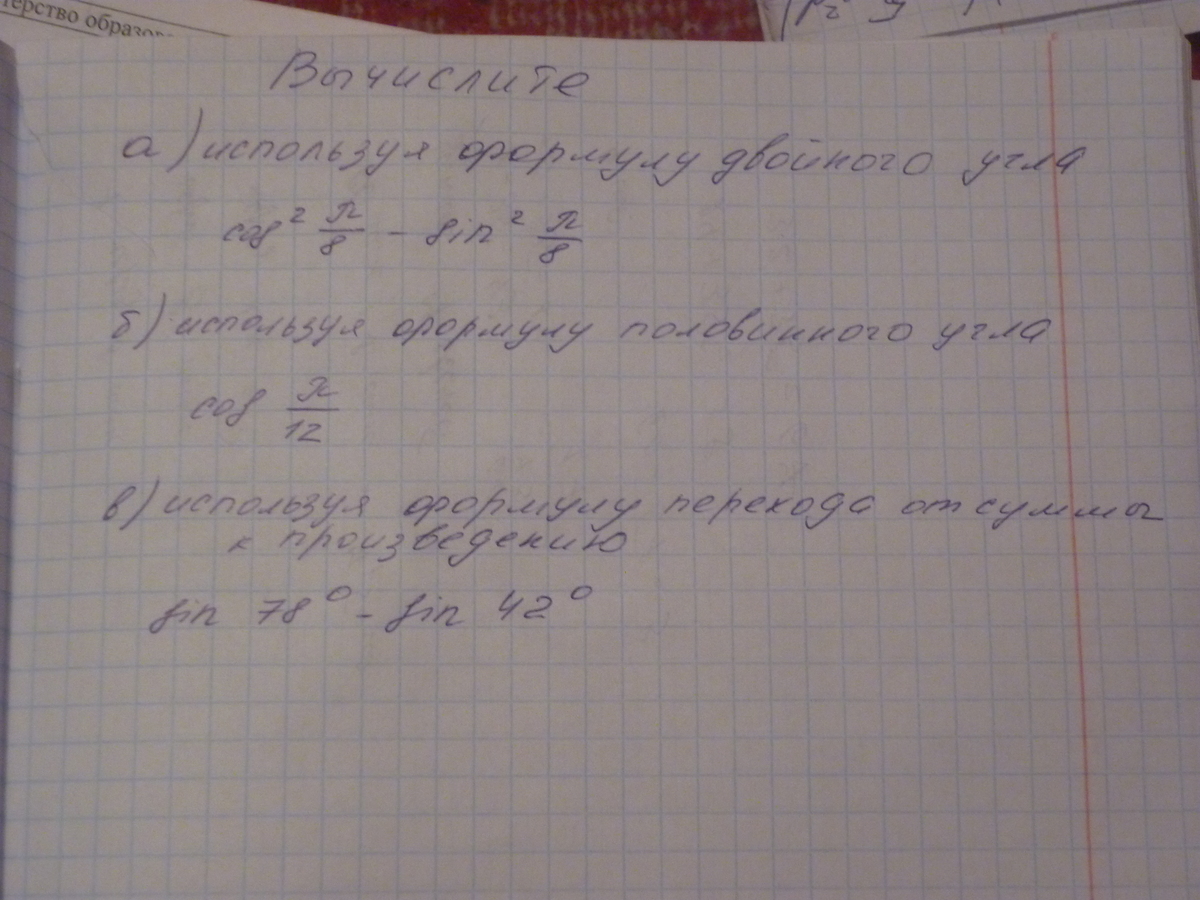 терство образов
Вычислите
а) используя формулу двойного угла
cos² π/8 - sin² π/8
б) используя формулу половинного угла
cos π/12
в) используя формулу перехода от суммы
к произведению
sin 78° - sin 42°